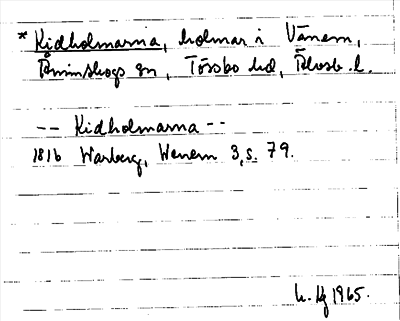 * Kidholmarna, holmar i Vänern,
Åmınskogs sn, Tössbo hd, Älvsb. l.
-- Kidholmarna --
1816 Warberg, Wenern 3, s. 79.
1965.